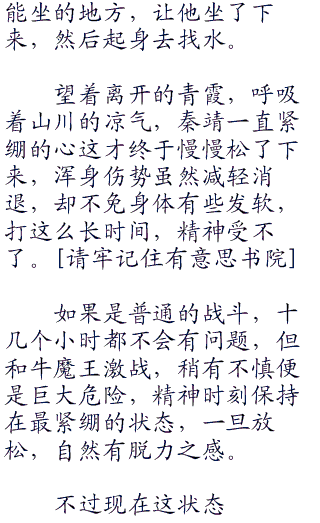 能坐的地方，让他坐了下
来，然后起身去找水。
望着离开的青霞，呼吸
着山川的凉气，秦靖一直紧
绷的心这才终于慢慢松了下
来，浑身伤势虽然减轻消
退，却不免身体有些发软，
打这么长时间，精神受不
了。[请牢记住有意思书院]
如果是普通的战斗，十
几个小时都不会有问题，但
和牛魔王激战，稍有不慎便
是巨大危险，精神时刻保持
在最紧绷的状态，一旦放
松，自然有脱力之感。
不过现在这状态